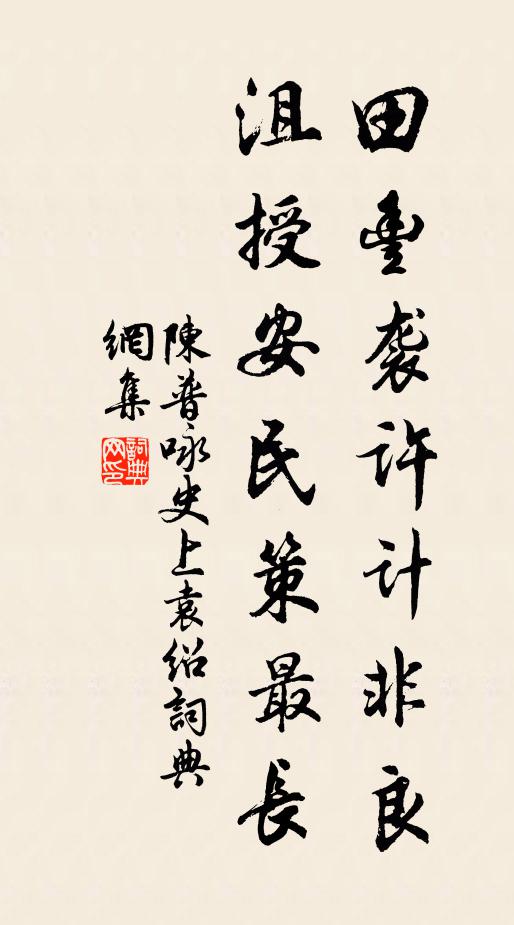 田豐袭許計非良
沮授安民策最長
陳普咏史上袁绍詞典
網集
詞典
网印